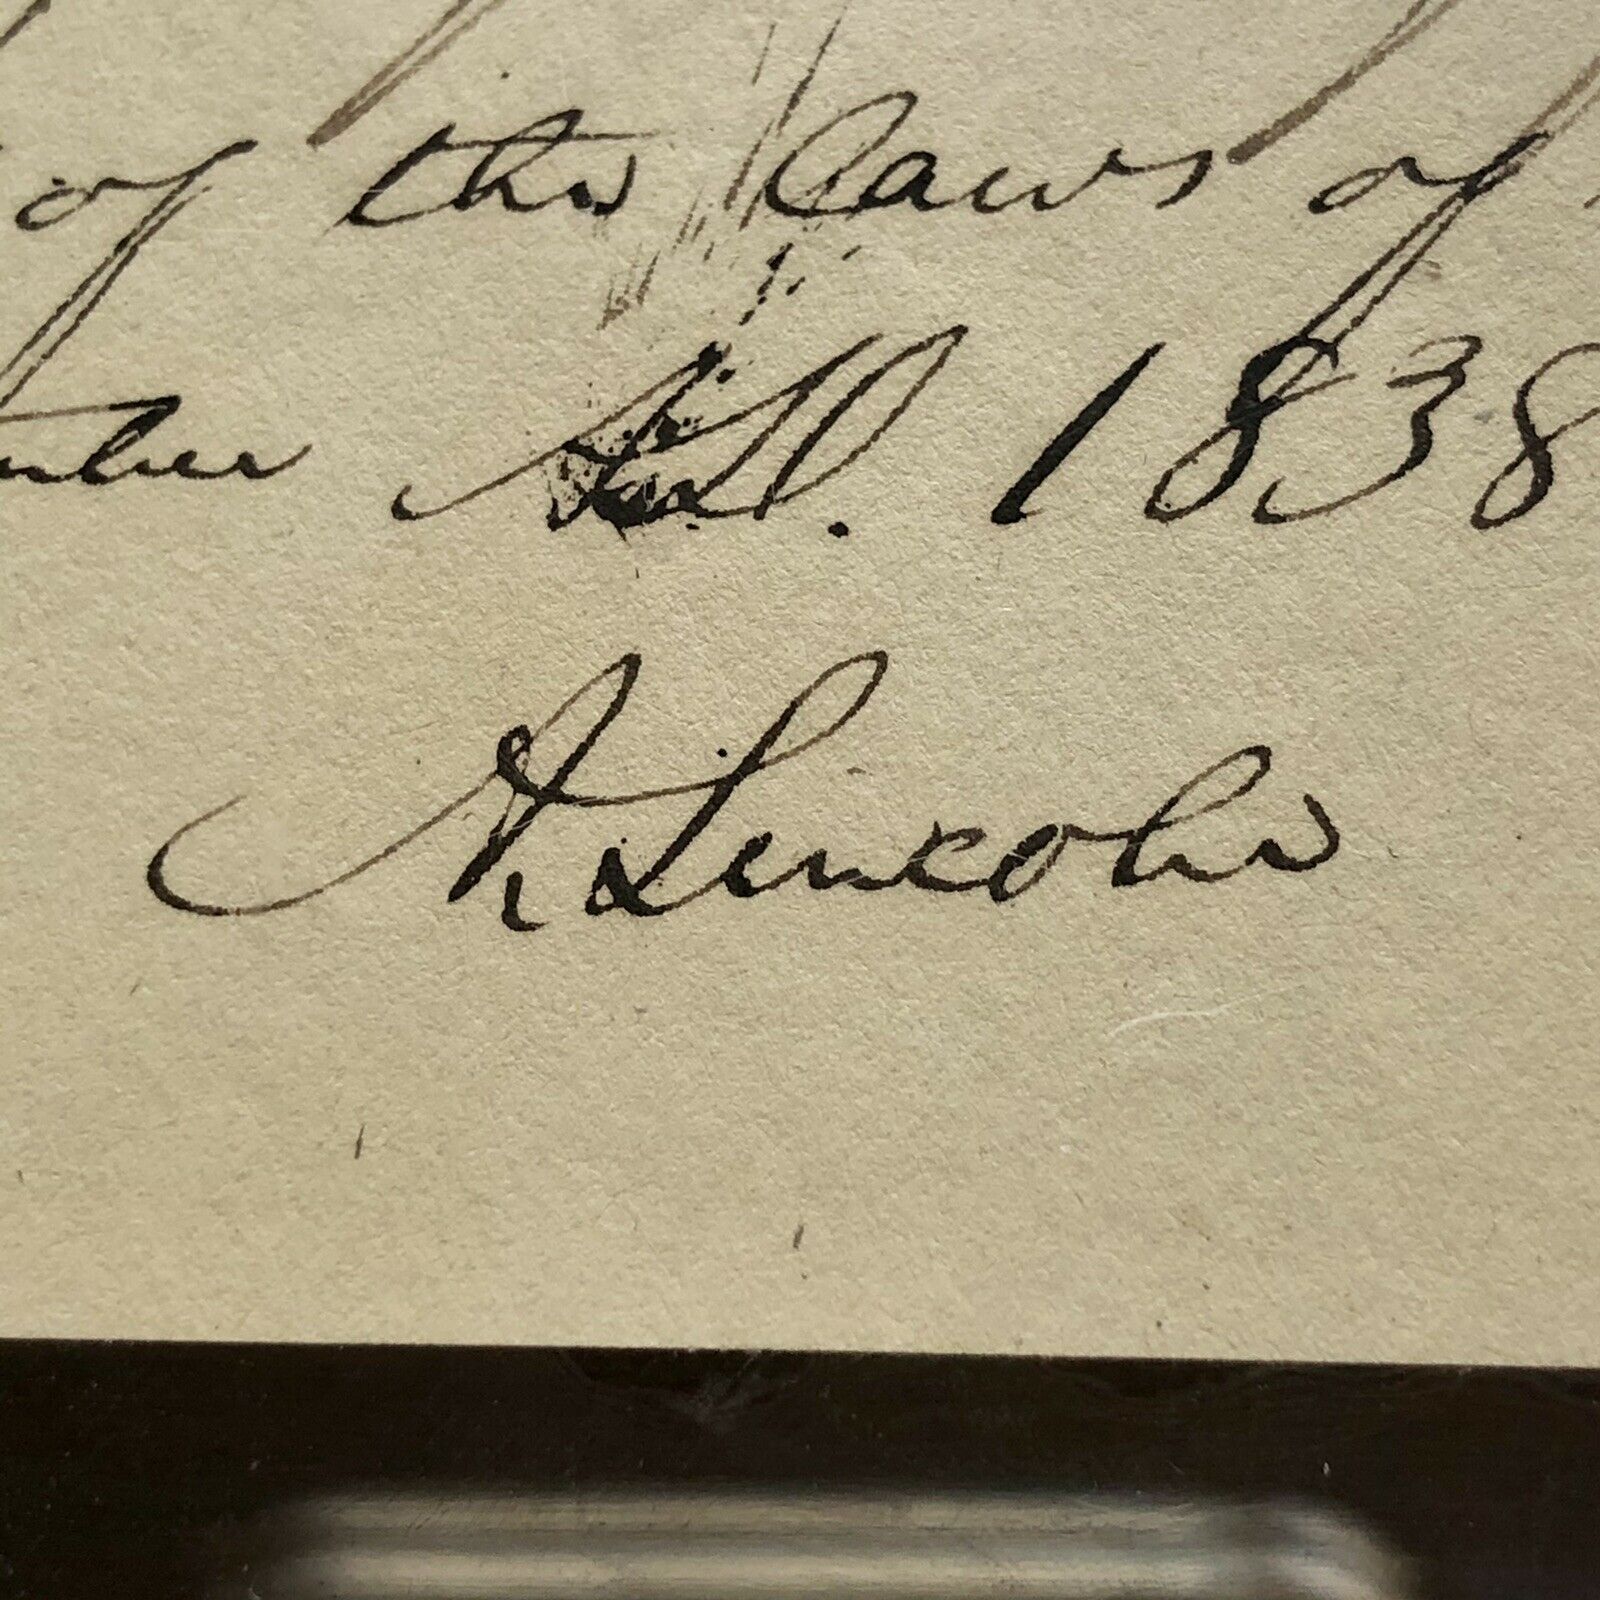 of the laws of
mber A.D. 1838
A Lincoln